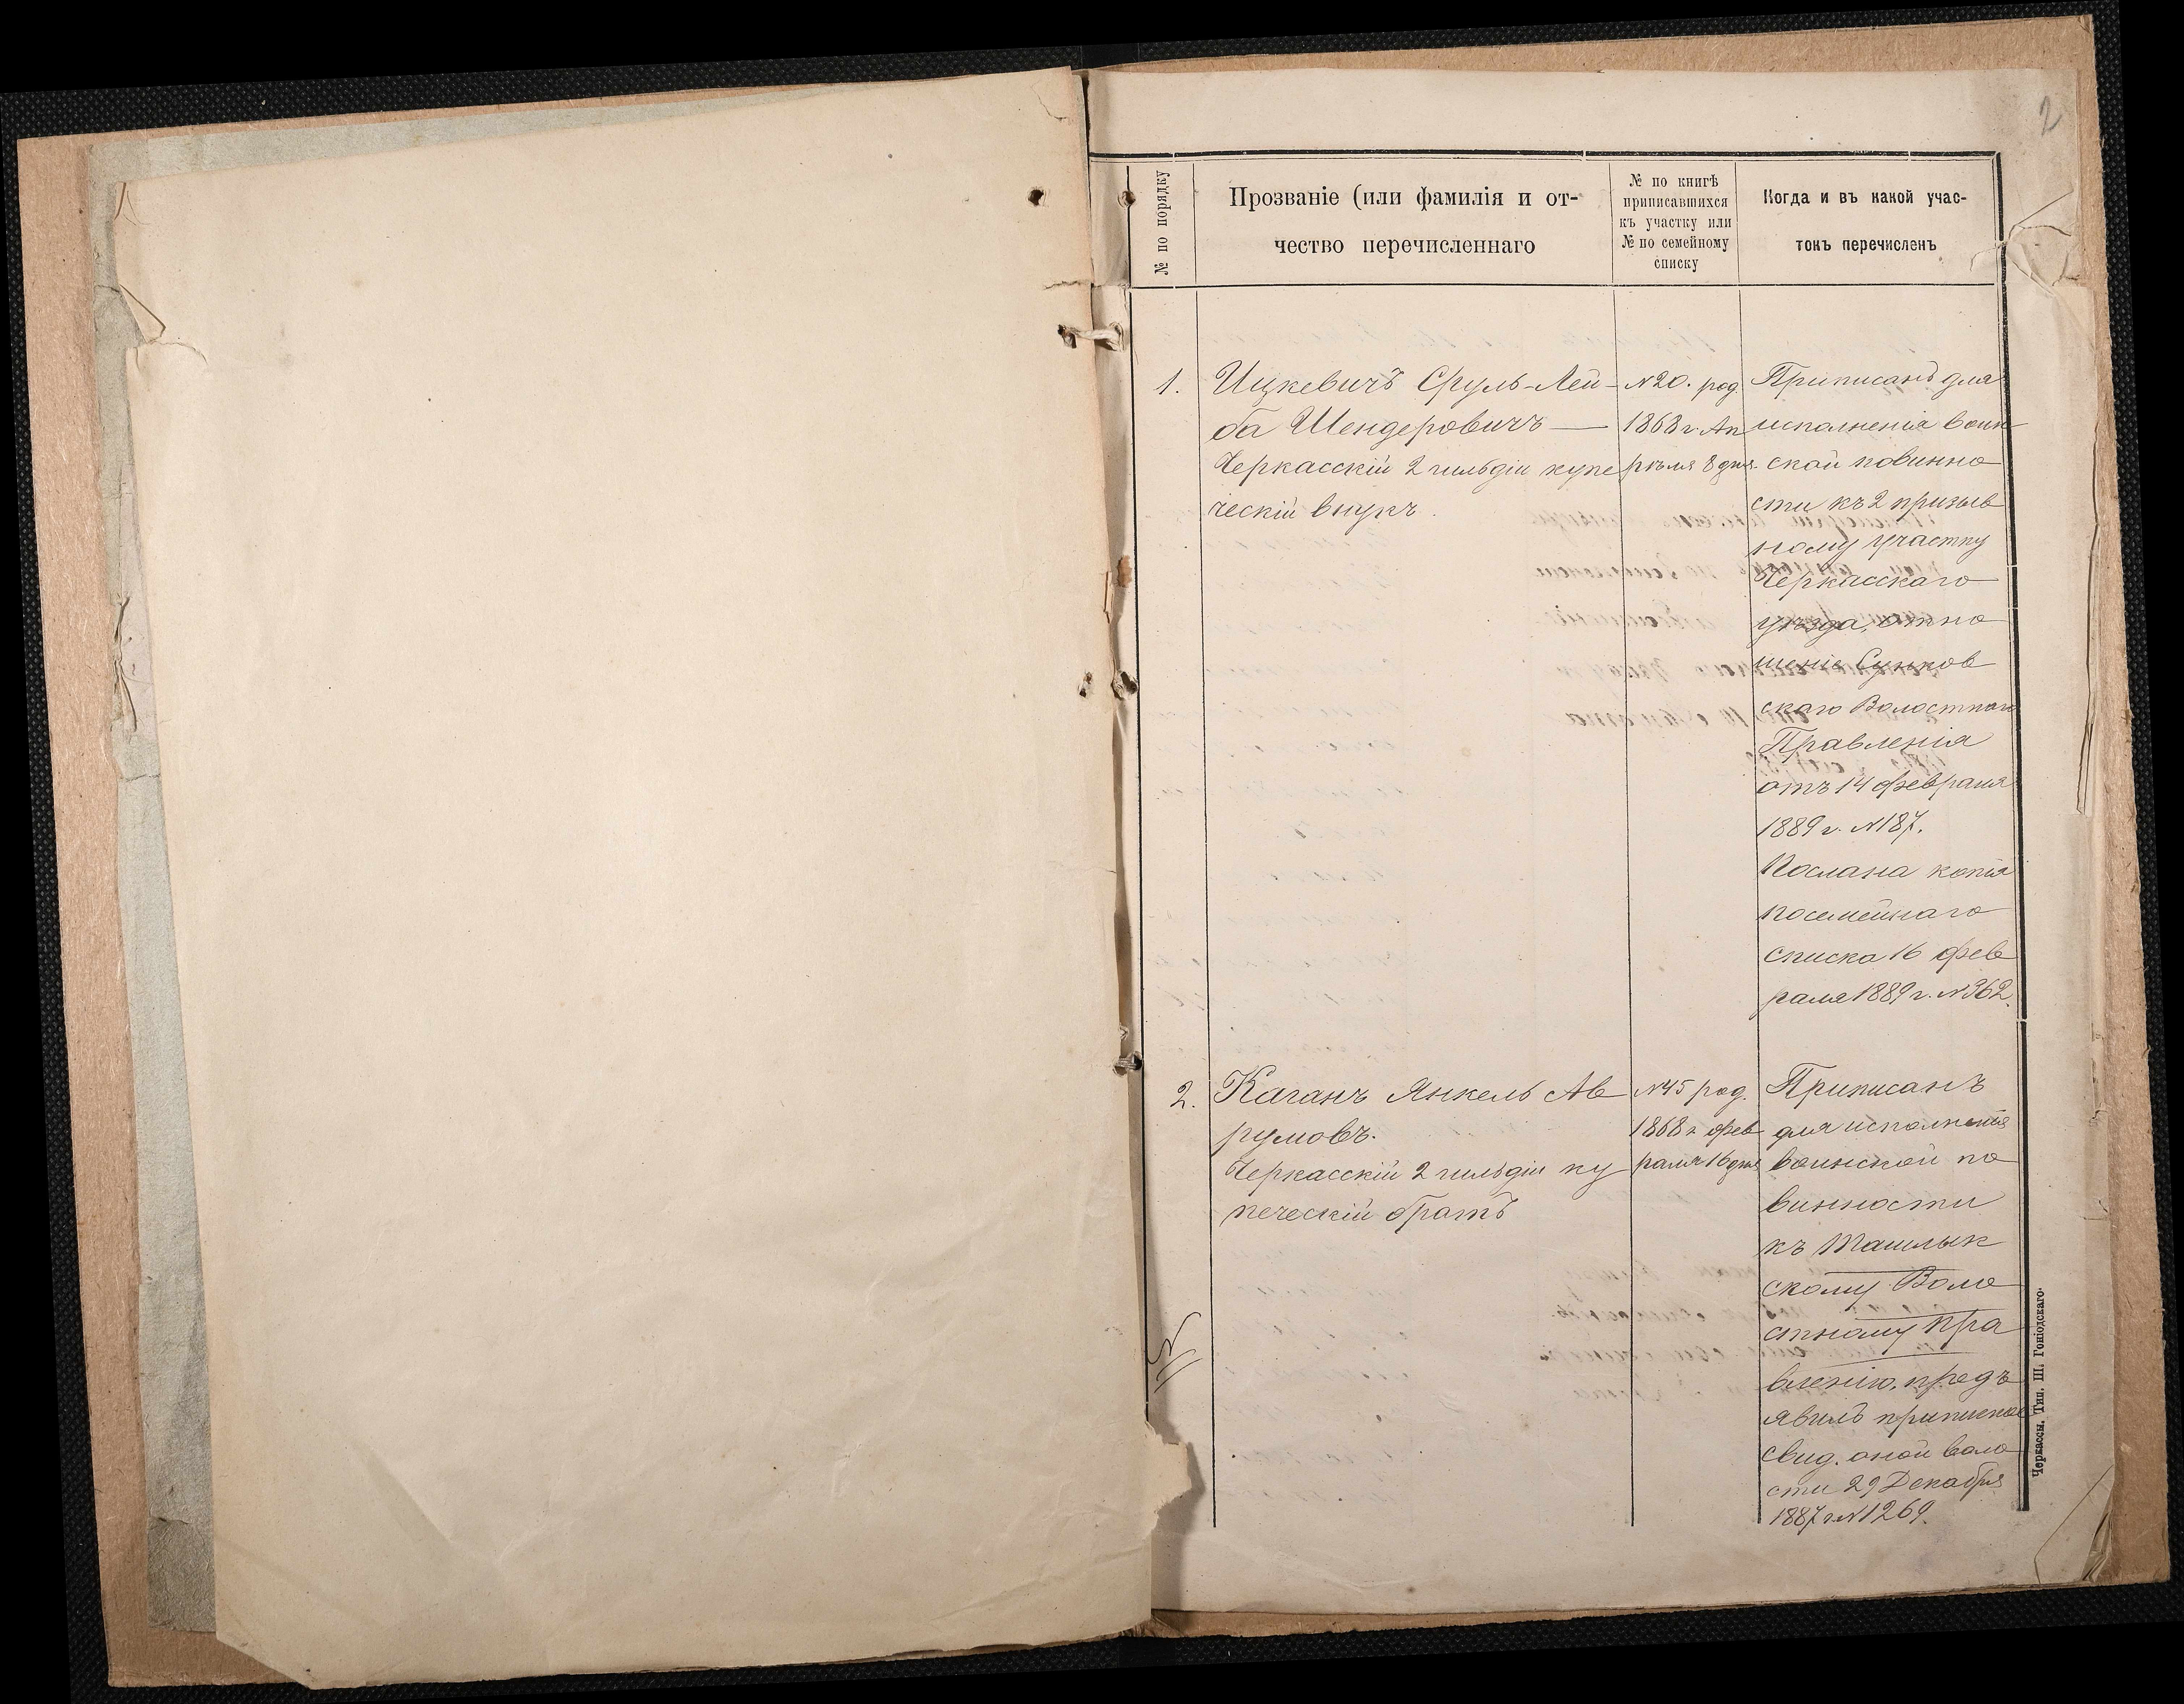 2
№ по порядку
Прозваніе (или фамилія и от-
чество перечисленнаго
№ по книгѣ
приписавшихся
къ участку или
№ по семейному
списку
Когда и въ какой учас-
токъ перечисленъ
1.
Ицкевичъ Сруль-Лей-
ба Шендеровичъ —
Черкасскій 2 гильдіи купе
ческій внукъ.
N20. род.
1868 г. Ап
рѣля 8 дня.
Приписанъ для
исполненія воин
ской повинно
сти къ 2 призыв
ному участку
Черкасскаго
уѣзда, отно
шеніе Сунков
скаго Волостнаго
Правленія
отъ 14 февраля
1889 г. N187.
Послана копія
посемейнаго
списка 16 фев
раля 1889 г. N362.
2.
Каганъ Янкель Ав
румовъ.
Черкасскій 2 гильдіи ку
печескій братъ
N45 род.
1868 г. фев
раля 16 дня
Приписанъ
для исполненія
воинской по
винности
къ Ташлык
скому Воло
стному Пра
вленію, предъ
явилъ приписное
свид. оной воло
сти 29 Декабря
1887 г. N1269.
Черкассы. Тип. Ш. Гоніодскаго.